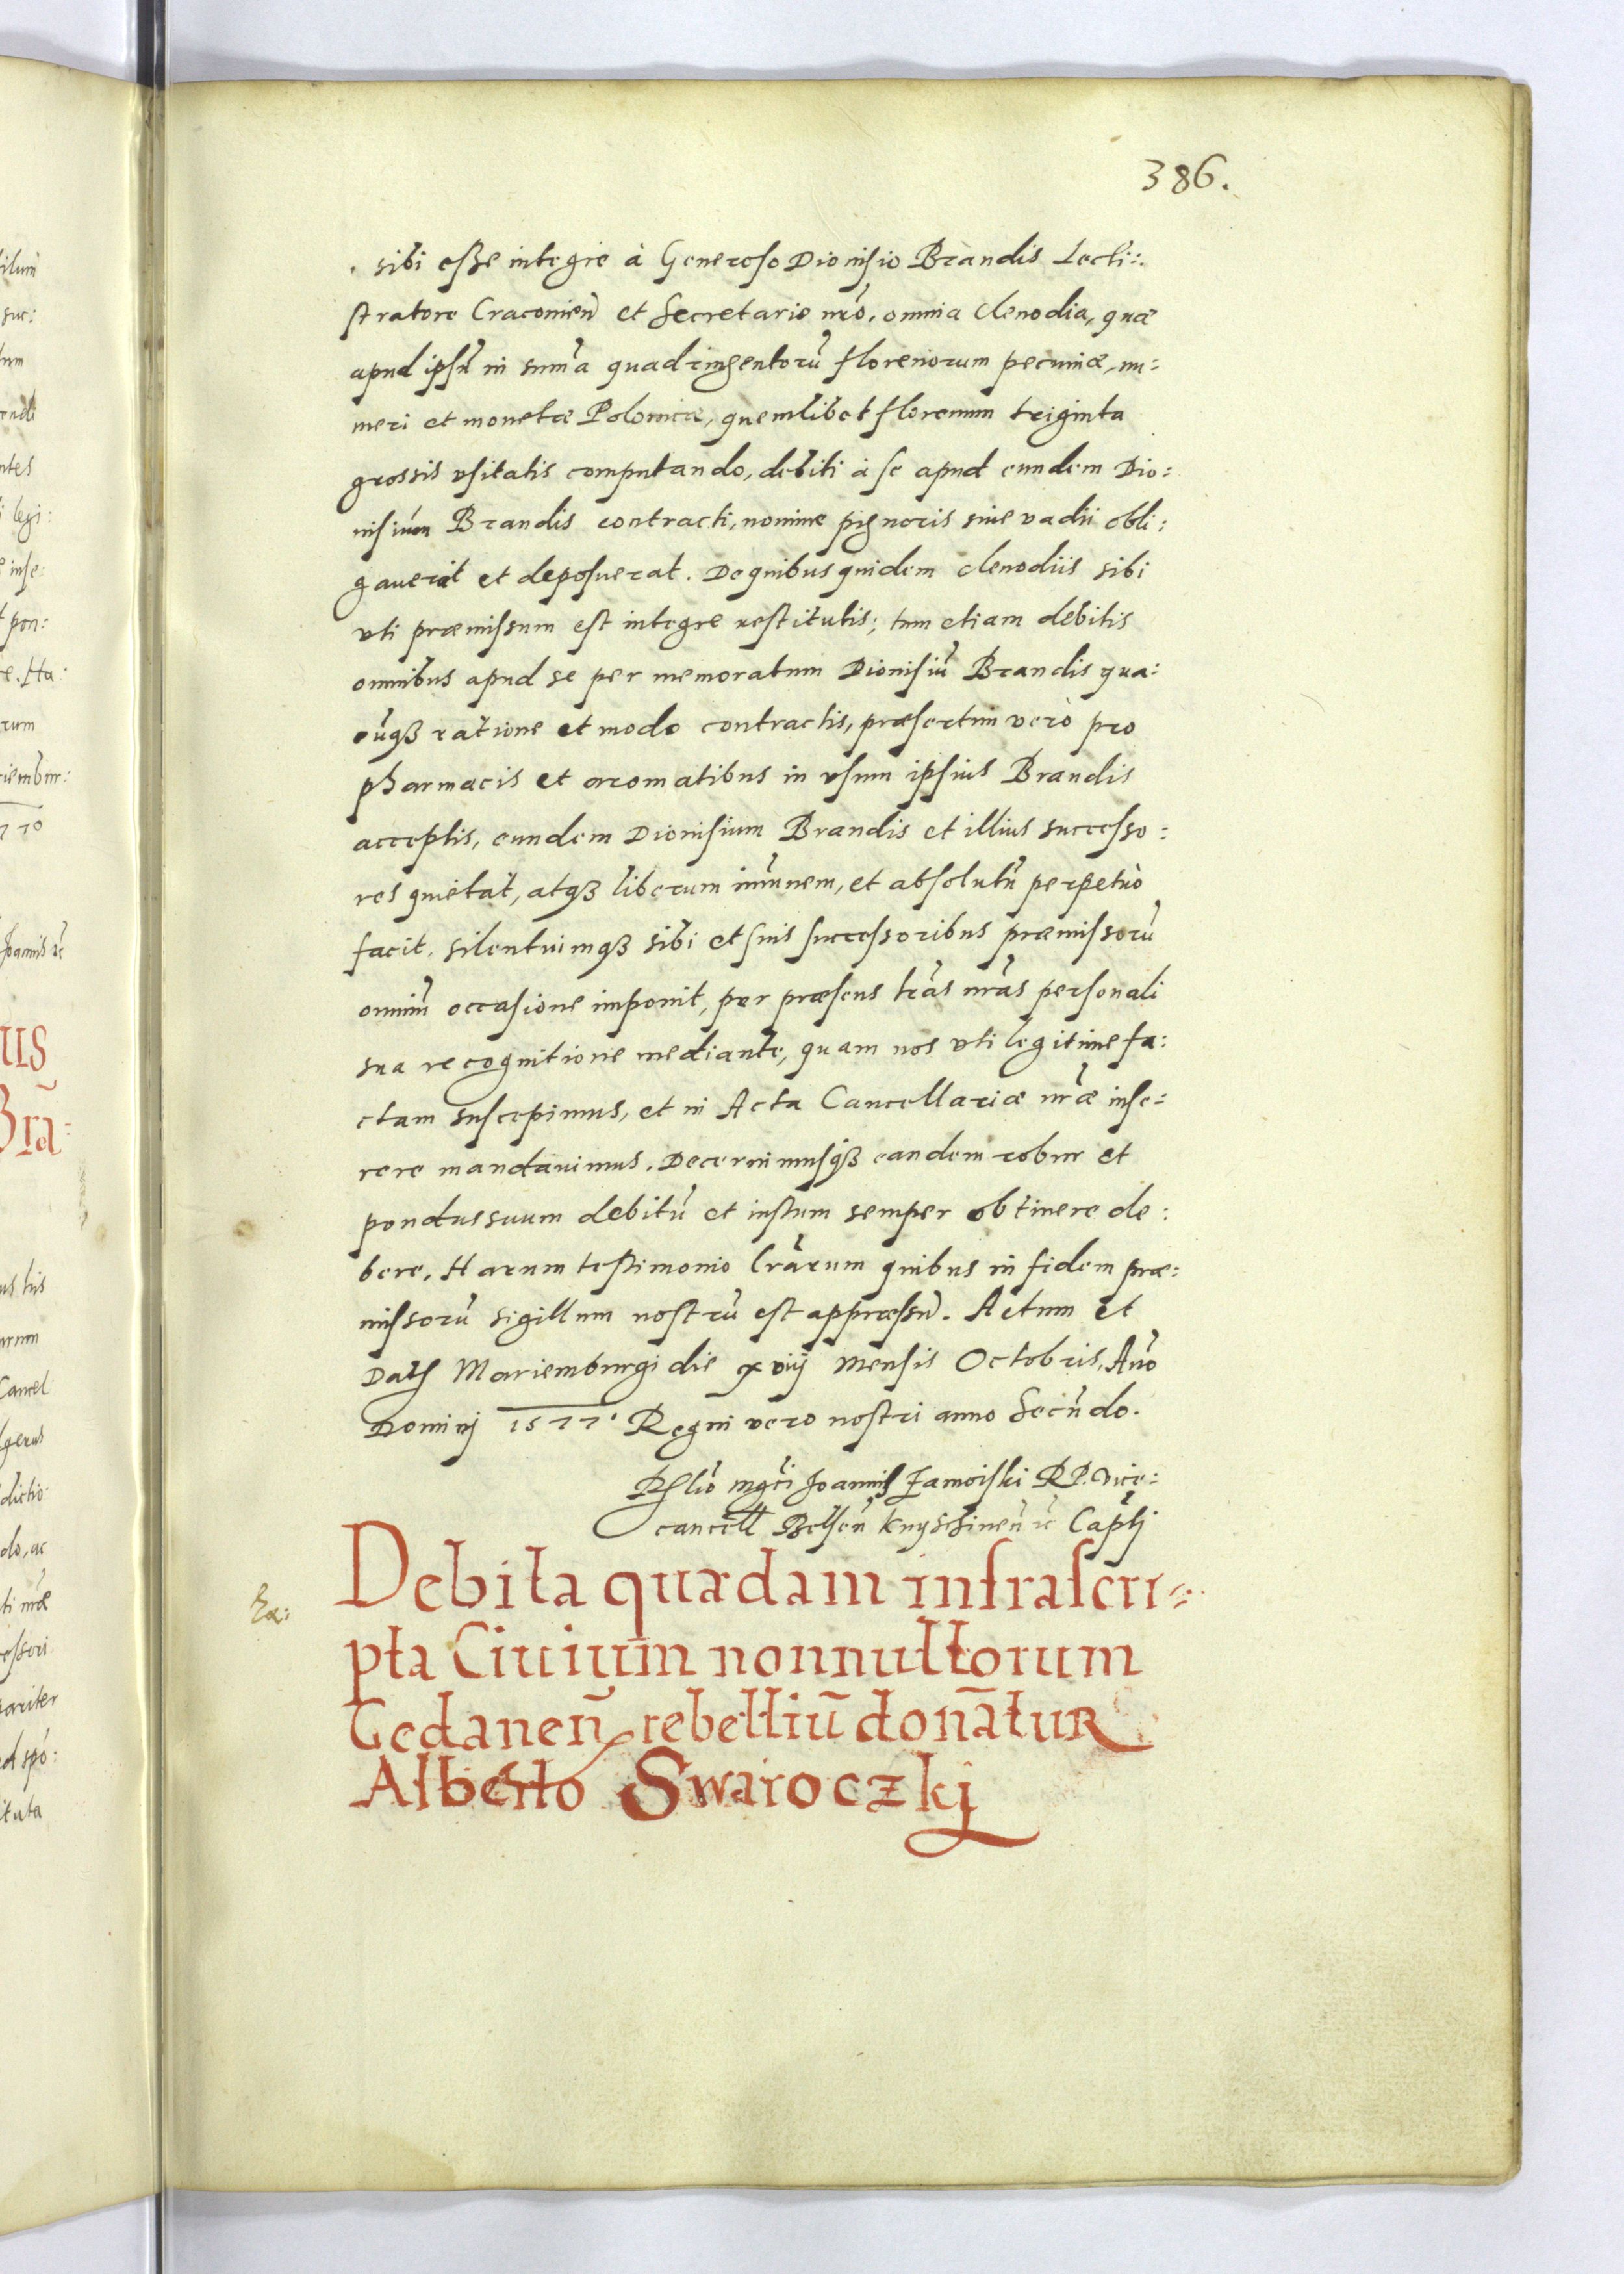 386.
sibi esse integre à Generoso Dionisio Brandis Lecti:
stratore Cracouien̄ et Secretario nr̄o, omnia clenodia, quæ
apud ipsū in sum̄a quadringentorū florenorum pecuniæ, nu:
meri et monetæ Polonicæ, quemlibet florenum triginta
grossis vsitatis computando, debiti à se apud eundem Dio:
nisium Brandis contracti, nomine pignoris siue vadii obli:
gauerat et deposuerat. De quibus quidem clenodiis sibi
vti præmissum est integre restitutis; tum etiam debitis
omnibus apud se per memoratum Dionisiū Brandis qua:
cūqꝫ ratione et modo contractis, præsertim verò pro
pharmacis et aromatibus in vsum ipsius Brandis
acceptis, eundem Dionisium Brandis et illius successo:
res quietat, atqꝫ liberum im̄unem, et absolutū perpetuò
facit. silentiumqꝫ sibi et suis successoribus præmissorū
omniū occasione imponit, per præsens lr̄as nr̄as personali
sua recognitione mediante, quam nos vti legitime fa:
ctam suscepimus, et in Acta Cancellariæ nr̄æ inse:
rere mandauimus. Decernimusqꝫ eandem robur et
pondus suum debitū et iustum semper obtinere de:
bere. Harum testimonio lr̄arum quibus in fidem præ:
missorū sigillum nostrū est appressū. Actum et
Datꝭ Mariemburgi die xviij mensis Octobris, An̄o
Dominj 1577. Regni vero nostri anno Secūndo.
Rl̄io mgc̄i Joannis Zamoiski R P. Vice:
cancell Belsen̄ Knyschinen̄ ꝛc Cap̄tj
Ex:
Debita quædam infrascri:
pta Ciuium nonnullorum
Gedanen̄ rebelliū donātur
Alberto Swaroczkj